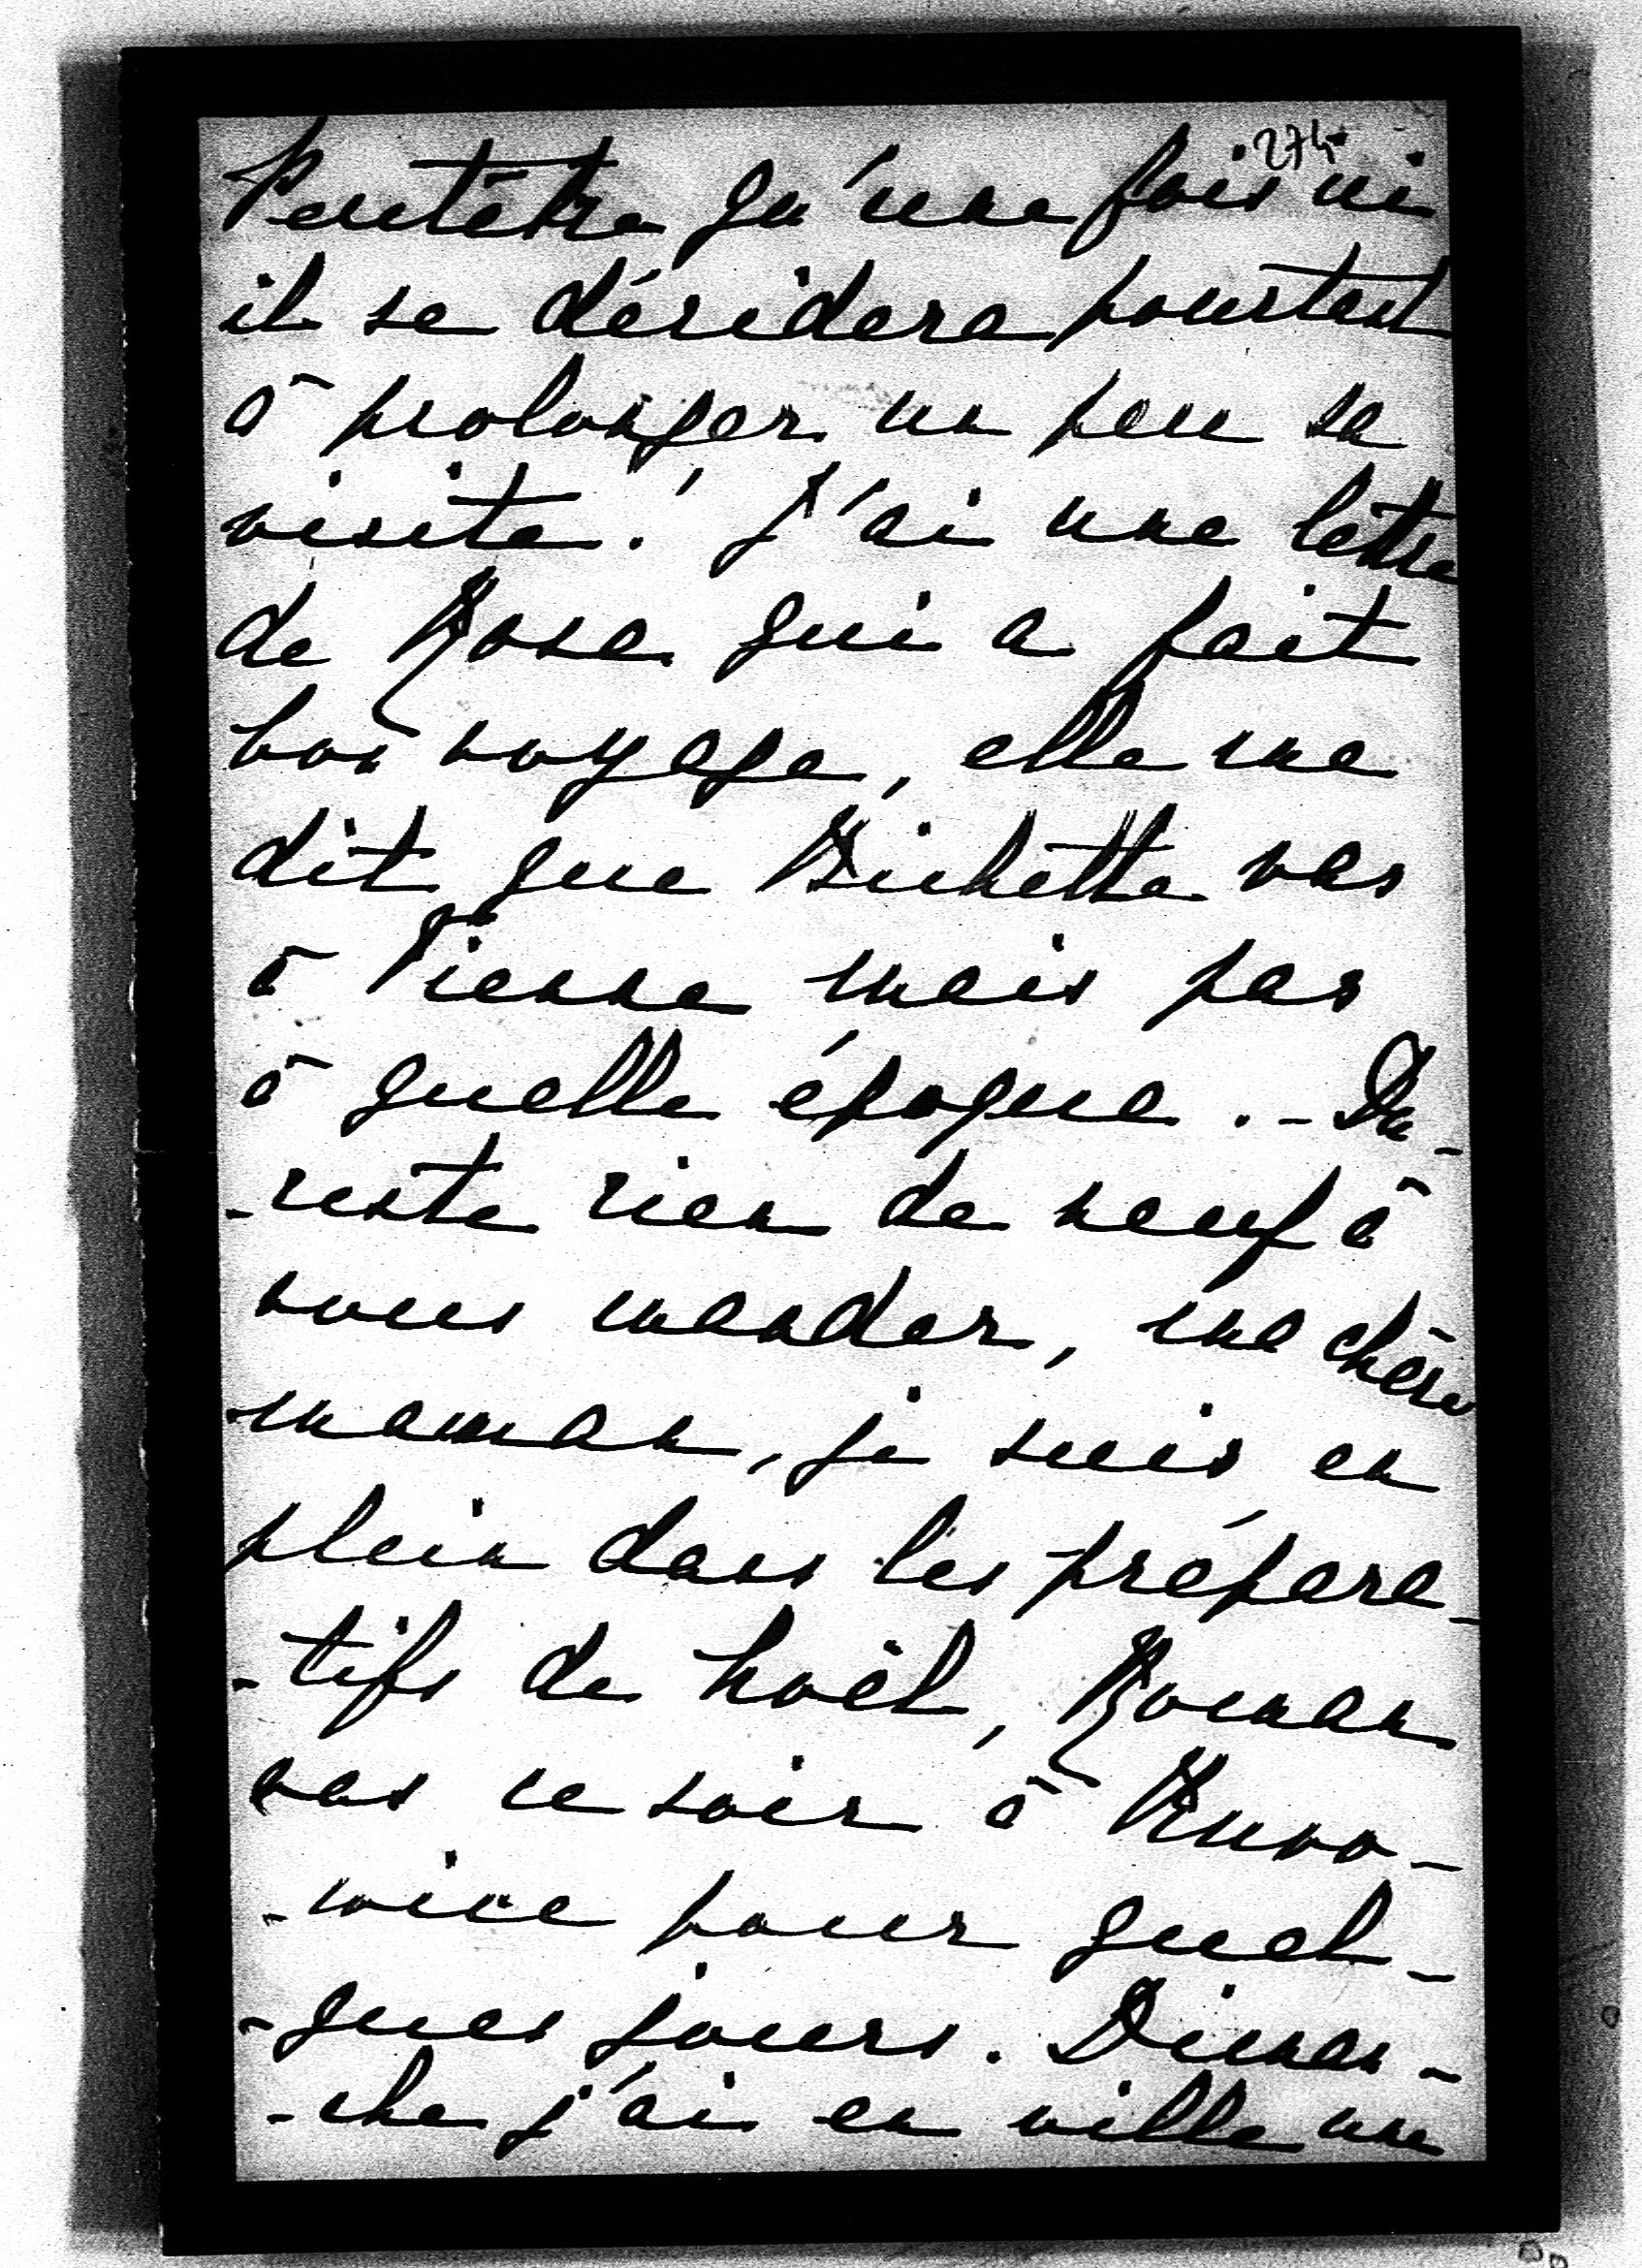 274
Peutêtre qu'une fois ici
il se décidera pourtant
à prolonger un peu sa
visite! J'ai une lettre
de Rose qui a fait
bon voyage, elle me
dit que Bichette vas
à Vienne mais pas
à quelle époque. - Du-
-reste rien de neuf à
vous mander, ma chère
maman, je suis en
plein dans les prépara-
-tifs de Noël, Roman
vas ce soir à
pour quel-
-ques jours. Diman-
-che j'ai en ville une